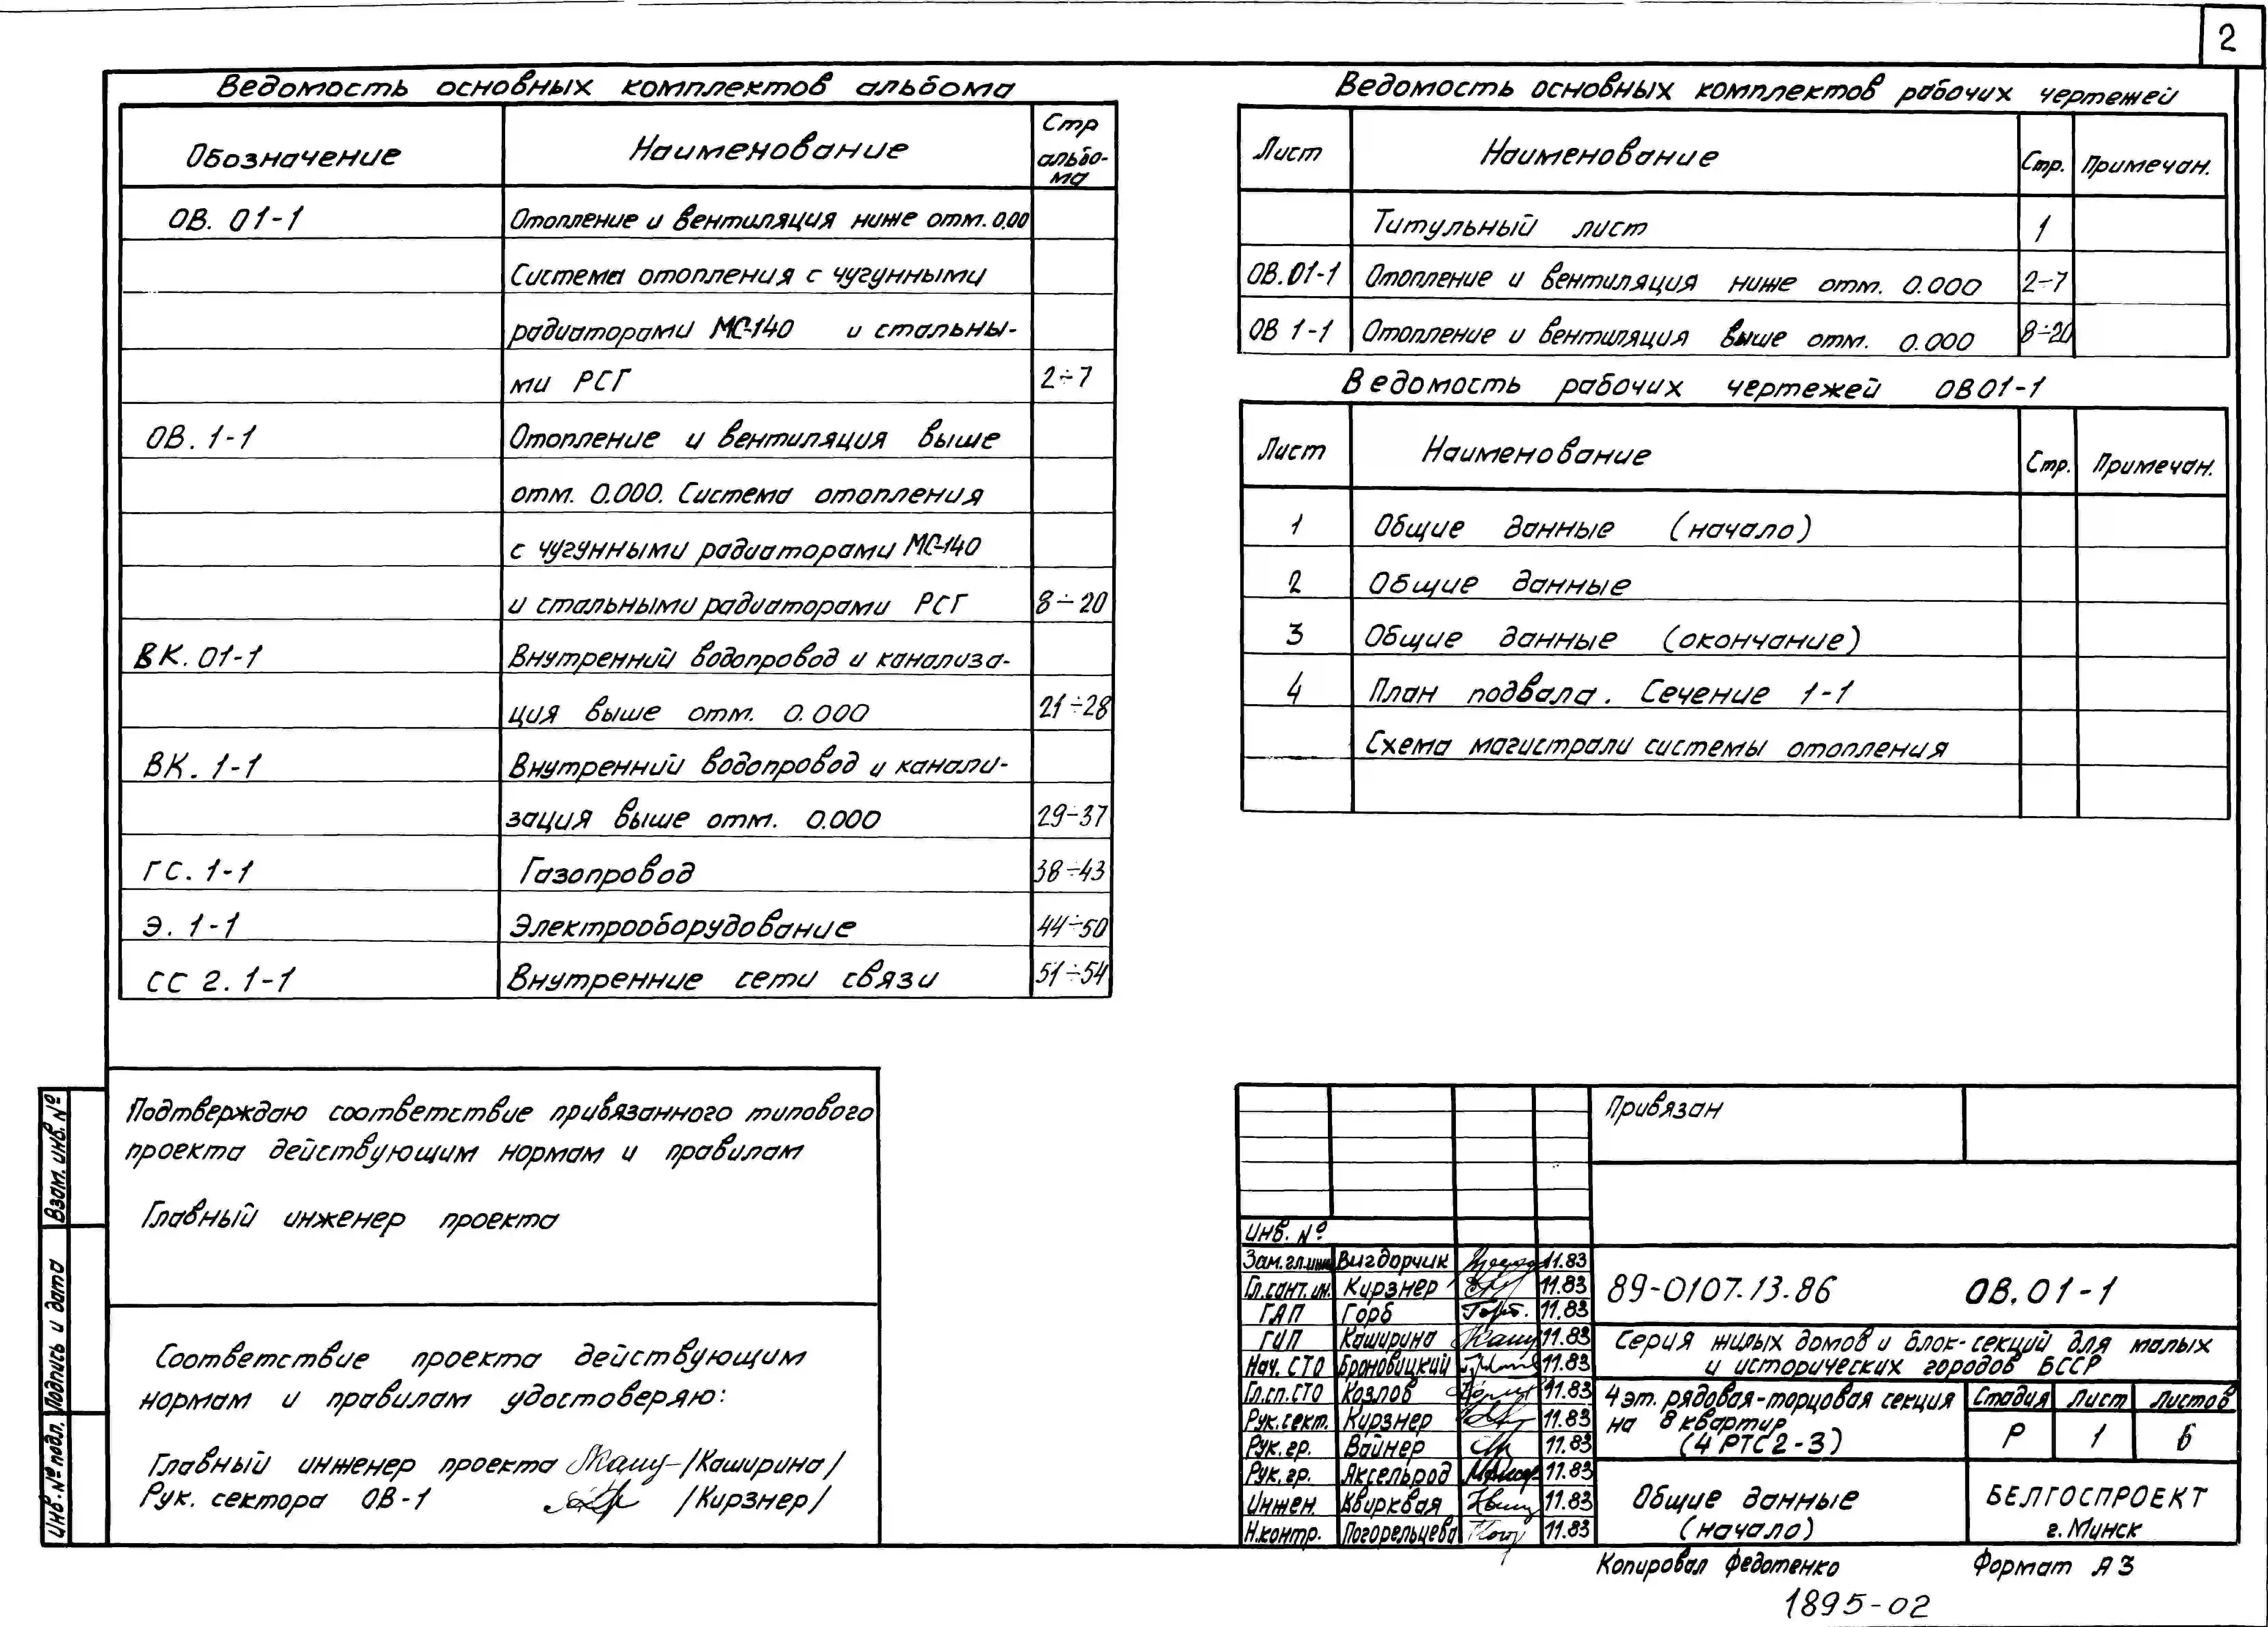 2
Ведомость основных комплектов альбома
Обозначение Наименование Стр альбо-ма
ОВ. 01-1 Отопление и вентиляция ниже отм. 0.00
Система отопления с чугунными
радиаторами МС-140 и стальны-
ми РСГ 2÷7
ОВ. 1-1 Отопление и вентиляция выше
отм. 0.000. Система отопления
с чугунными радиаторами МС-140
и стальными радиаторами РСГ 8÷20
ВК. 01-1 Внутренний водопровод и канализа-
ция выше отм. 0.000 21÷28
ВК. 1-1 Внутренний водопровод и канали-
зация выше отм. 0.000 29÷37
ГС. 1-1 Газопровод 38÷43
Э. 1-1 Электрооборудование 44÷50
СС 2. 1-1 Внутренние сети связи 51÷54
Ведомость основных комплектов рабочих чертежей
Лист Наименование Стр. Примечан.
Титульный лист 1
ОВ.01-1 Отопление и вентиляция ниже отм. 0.000 2-7
ОВ 1-1 Отопление и вентиляция выше отм. 0.000 8÷20
Ведомость рабочих чертежей ОВ01-1
Лист Наименование Стр. Примечан.
1 Общие данные (начало)
2 Общие данные
3 Общие данные (окончание)
4 План подвала. Сечение 1-1
Схема магистрали системы отопления
Подтверждаю соответствие привязанного типового
проекта действующим нормам и правилам
Главный инженер проекта
Соответствие проекта действующим
нормам и правилам удостоверяю:
Главный инженер проекта /Каширина/
Рук. сектора ОВ-1 /Кирзнер/
Взам. инв. №
Подпись и дата
Инв. № подл.
Привязан
Инв. №
Зам.гл.инж Вигдорчик 11.83
Гл.сант.ин. Кирзнер 11.83
ГАП Горб 11.83
ГИП Каширина 11.83
Нач. СТО Броновицкий 11.83
Гл.сп.СТО Козлов 11.83
Рук.сект. Кирзнер 11.83
Рук.гр. Вайнер 11.83
Рук.гр. Аксельрод 11.83
Инжен. Квирквая 11.83
Н.контр. Погорельцева 11.83
89-0107.13.86 ОВ.01-1
Серия жилых домов и блок-секций для малых
и исторических городов БССР
4эт. рядовая-торцовая секция
на 8 квартир
(4РТС2-3)
Стадия Лист Листов
Р 1 6
Общие данные
(начало)
БЕЛГОСПРОЕКТ
г. Минск
Копировал Федотенко Формат А3
1895-02